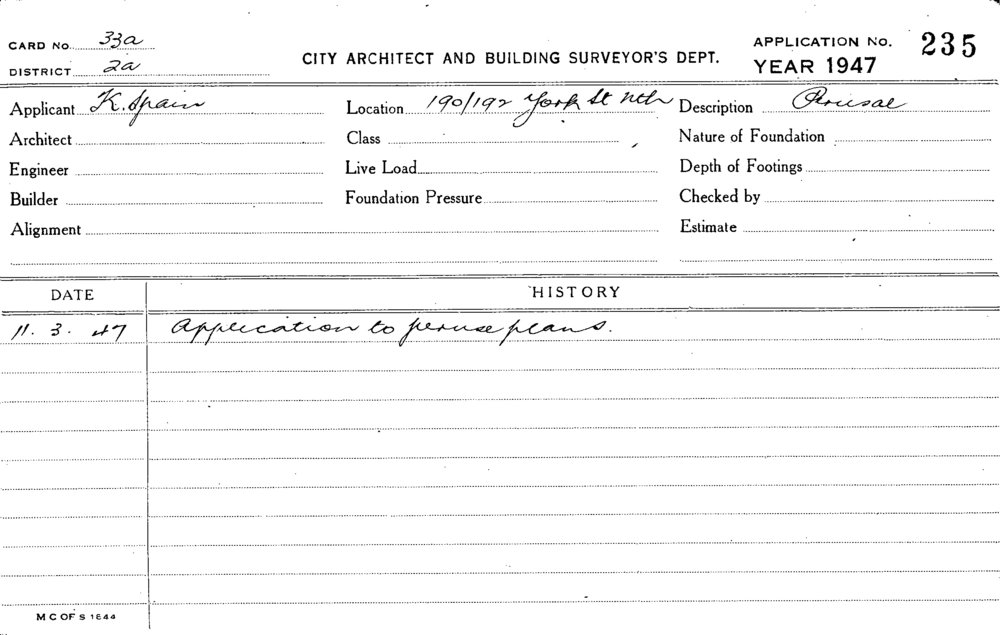 CARD No. 33a
DISTRICT 2a
CITY ARCHITECT AND BUILDING SURVEYOR'S DEPT.
APPLICATION No. 235
YEAR 1947
Applicant K. Spain Location 190/192 York St Nth Description Perusal
Architect Class Nature of Foundation
Engineer Live Load Depth of Footings
Builder Foundation Pressure Checked by
Alignment Estimate
DATE HISTORY
11. 3. 47 Application to peruse plans.
M C OF S 1844